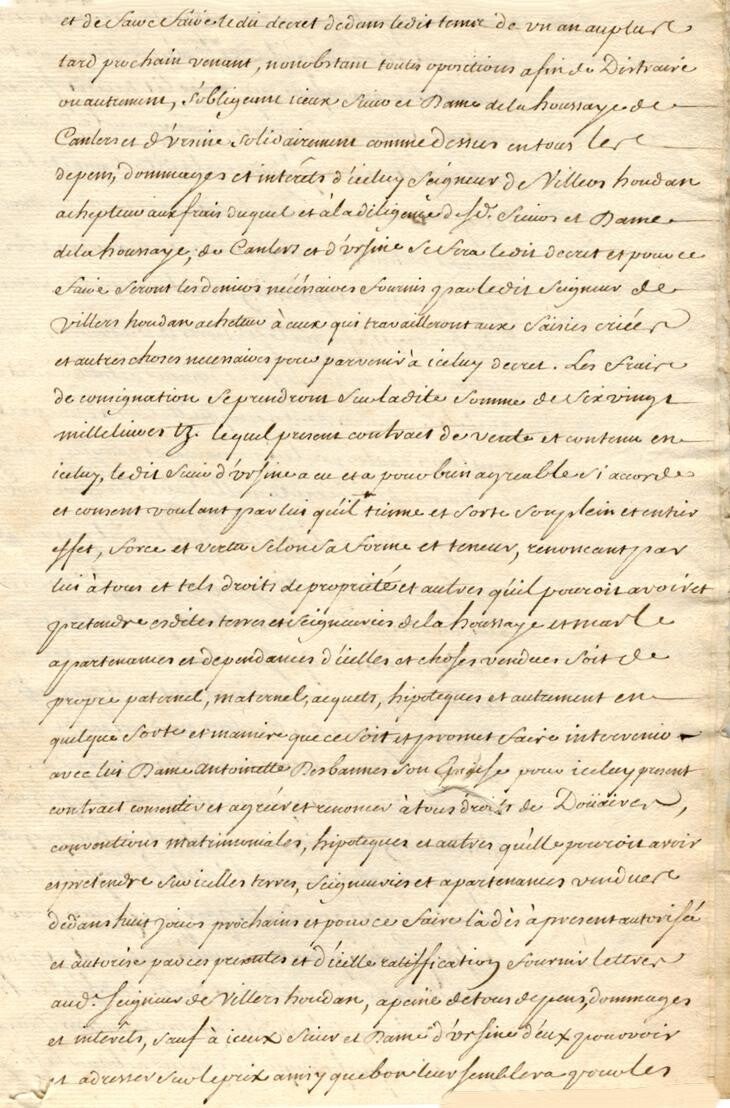 et de faire faire ledit decret dedans ledit temps de un an au plus
tard prochain venant, nonobstant toutes opositions afin de Distraire
ou autrement, s'obligeant iceux Sieur et Dame de la houssaye de
Canlers et d'Ursine solidairement comme dessus en tous les
depens, dommages et interêts d'iceluy Seigneur de Villers houdan
achepteur aux frais duquel et à la diligence desd. Sieurs et Dame
de la houssaye, de Canlers et d'Ursine se fera ledit decret et pour ce
faire seront les deniers nécésaires fournis par ledit Seigneur de
Villers houdan acheteur à ceux qui travailleront aux saisies criées
et autres choses necesaires pour parvenir à iceluy decret. Les frais
de consignation se prendront sur ladite somme de six vingt
mille livres tz. lequel present contract de vente et contenu en
iceluy, ledit Sieur d'Ursine a eu et a pour bien agreable s'i accorde
et consent voulant par lui qu'il tienne et sorte son plein et entier
effet, force et vertu selon sa forme et teneur, renoncant par
lui à tous et tels droits de proprieté et autres qu'il pouroit avoir et
pretendre esdites terres et seigneuries de la houssaye et marle
apartenances et dependances d'icelles et choses vendues soit de
propre paternel, maternel, acquets, hipoteques et autrement en
quelque sorte et maniere que ce soit et promet faire intervenir
avec lui Dame Antoinette Desbannes son Epouse pour iceluy present
contract consentir et agréer et renoncer à tous droits de Doüaires,
conventions matrimoniales, hipoteques et autres qu'elle pouroit avoir
et pretendre sur icelles terres, seigneuries et apartenances vendues
dedans huit jours prochains et pour ce faire la dès à present autorisée
et autorise par ces presentes et d'icelle ratiffication fournir lettres
aud. seigneur de Villers houdan, a peine de tous depens, dommages
et interêts, sauf à iceux Sieur et Dame d'Ursine d'eux pourvoir
et adresser sur le prix ainsy que bon leur semblera pour les